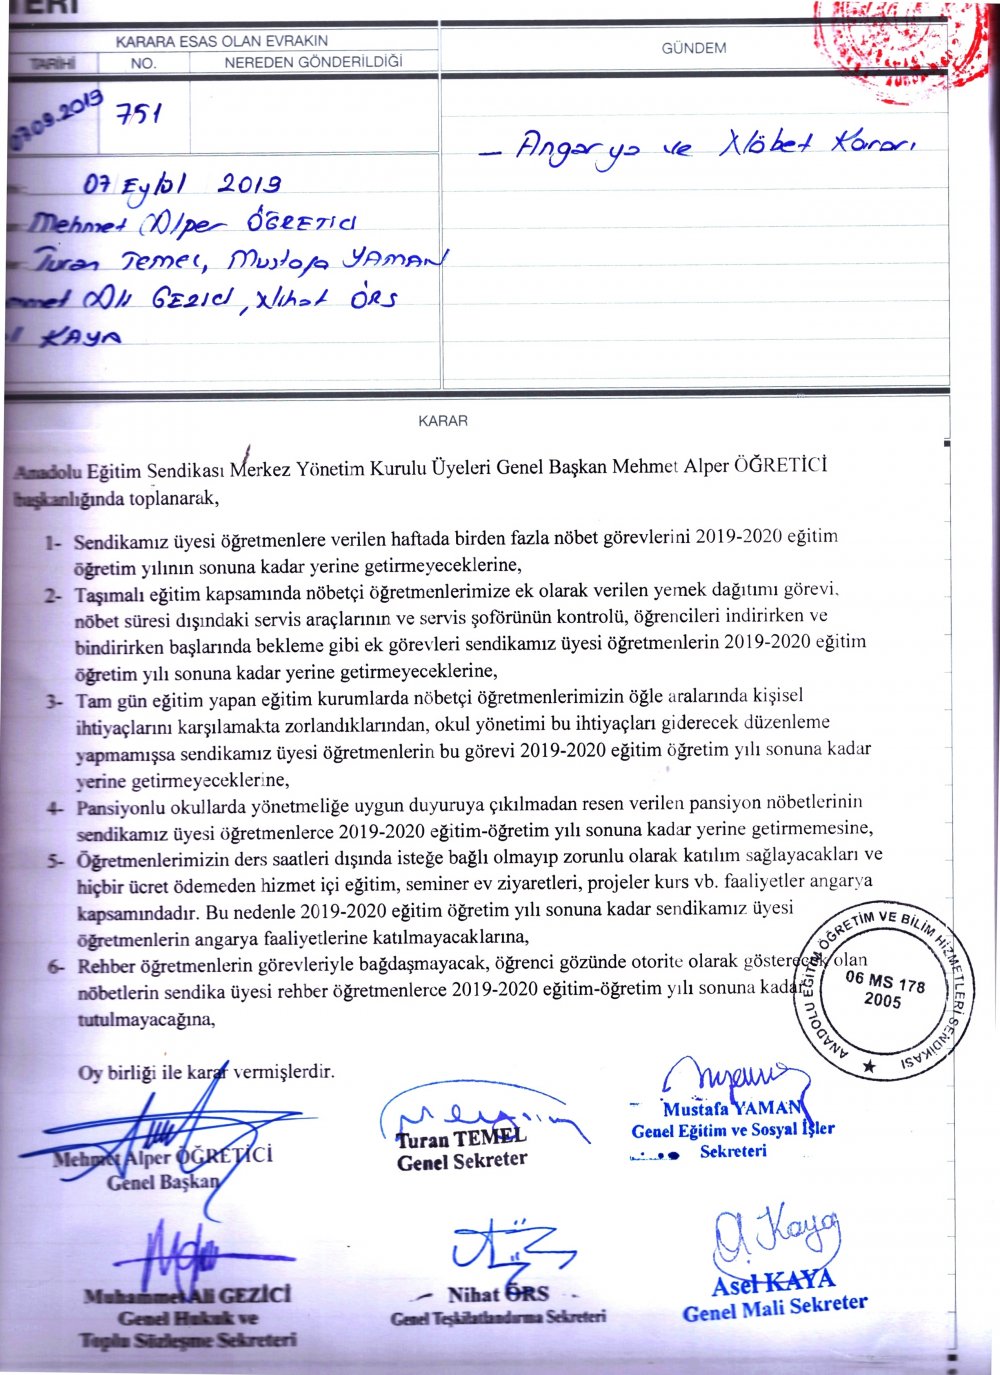 TERİ
KARARA ESAS OLAN EVRAKIN
GÜNDEM
TARİHİ NO. NEREDEN GÖNDERİLDİĞİ
07.09.2019 751
- Angarya ve Nöbet Kararı
07 Eylül 2019
Mehmet Alper ÖĞRETİCİ
Turan TEMEL, Mustafa YAMAN
Ali GEZİCİ, Nihat ÖRS
KAYA
KARAR
Anadolu Eğitim Sendikası Merkez Yönetim Kurulu Üyeleri Genel Başkan Mehmet Alper ÖĞRETİCİ
başkanlığında toplanarak,
1- Sendikamız üyesi öğretmenlere verilen haftada birden fazla nöbet görevlerini 2019-2020 eğitim
öğretim yılının sonuna kadar yerine getirmeyeceklerine,
2- Taşımalı eğitim kapsamında nöbetçi öğretmenlerimize ek olarak verilen yemek dağıtımı görevi,
nöbet süresi dışındaki servis araçlarının ve servis şoförünün kontrolü, öğrencileri indirirken ve
bindirirken başlarında bekleme gibi ek görevleri sendikamız üyesi öğretmenlerin 2019-2020 eğitim
öğretim yılı sonuna kadar yerine getirmeyeceklerine,
3- Tam gün eğitim yapan eğitim kurumlarda nöbetçi öğretmenlerimizin öğle aralarında kişisel
ihtiyaçlarını karşılamakta zorlandıklarından, okul yönetimi bu ihtiyaçları giderecek düzenleme
yapmamışsa sendikamız üyesi öğretmenlerin bu görevi 2019-2020 eğitim öğretim yılı sonuna kadar
yerine getirmeyeceklerine,
4- Pansiyonlu okullarda yönetmeliğe uygun duyuruya çıkılmadan resen verilen pansiyon nöbetlerinin
sendikamız üyesi öğretmenlerce 2019-2020 eğitim-öğretim yılı sonuna kadar yerine getirmemesine,
5- Öğretmenlerimizin ders saatleri dışında isteğe bağlı olmayıp zorunlu olarak katılım sağlayacakları ve
hiçbir ücret ödemeden hizmet içi eğitim, seminer ev ziyaretleri, projeler kurs vb. faaliyetler angarya
kapsamındadır. Bu nedenle 2019-2020 eğitim öğretim yılı sonuna kadar sendikamız üyesi
öğretmenlerin angarya faaliyetlerine katılmayacaklarına,
6- Rehber öğretmenlerin görevleriyle bağdaşmayacak, öğrenci gözünde otorite olarak gösterecek olan
nöbetlerin sendika üyesi rehber öğretmenlerce 2019-2020 eğitim-öğretim yılı sonuna kadar
tutulmayacağına,
ANADOLU EĞİTİM ÖĞRETİM VE BİLİM HİZMETLERİ SENDİKASI
06 MS 178
2005
Oy birliği ile karar vermişlerdir.
Mehmet Alper ÖĞRETİCİ
Genel Başkan
Turan TEMEL
Genel Sekreter
Mustafa YAMAN
Genel Eğitim ve Sosyal İşler
Sekreteri
Muhammet Ali GEZİCİ
Genel Hukuk ve
Toplu Sözleşme Sekreteri
Nihat ÖRS
Genel Teşkilatlandırma Sekreteri
A. Kaya
Asel KAYA
Genel Mali Sekreter